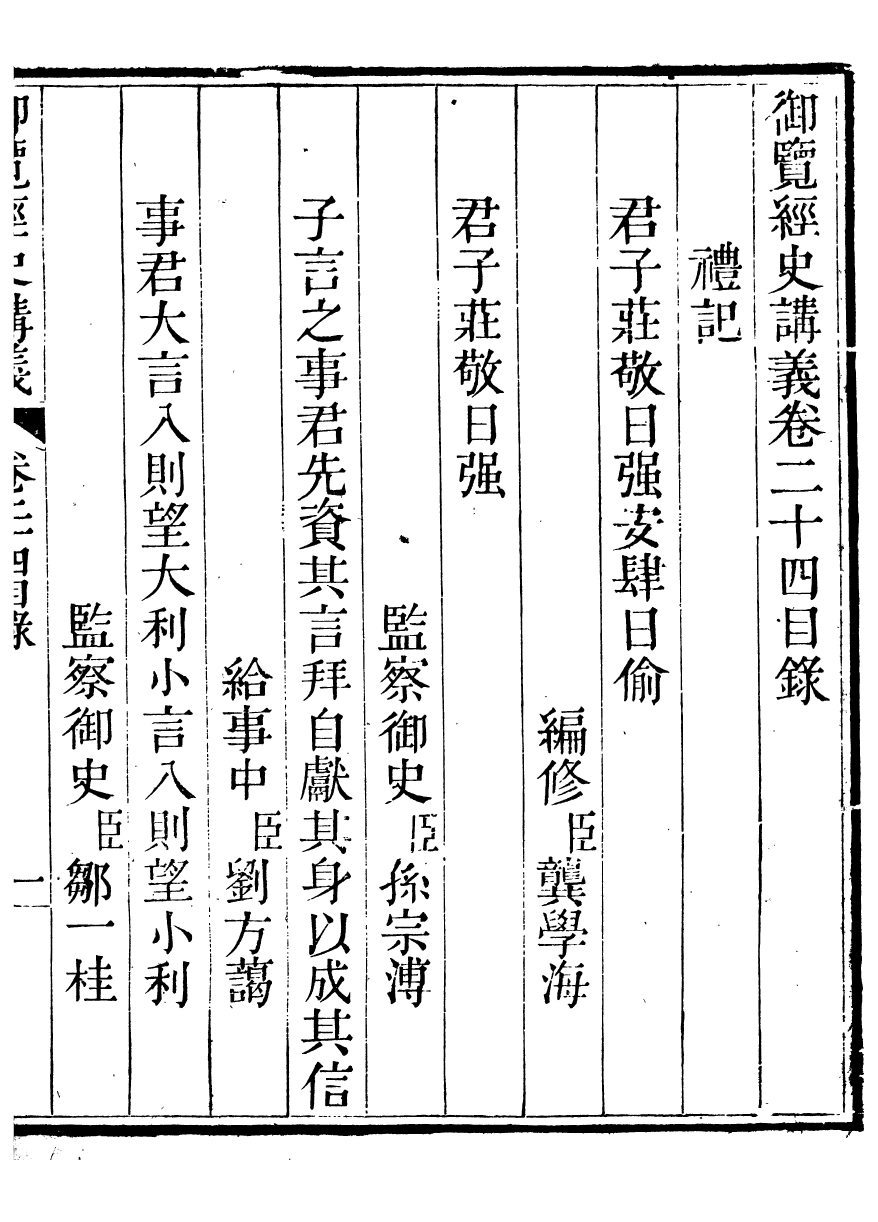 御覽經史講義卷二十四目錄
禮記
君子莊敬日强安肆日偷
編修臣龔學海
君子莊敬日强
監察御史臣孫宗溥
子言之事君先資其言拜自獻其身以成其信
給事中臣劉方藹
事君大言入則望大利小言入則望小利
監察御史臣鄒一桂
御覽經史講義 卷二十四目錄 一